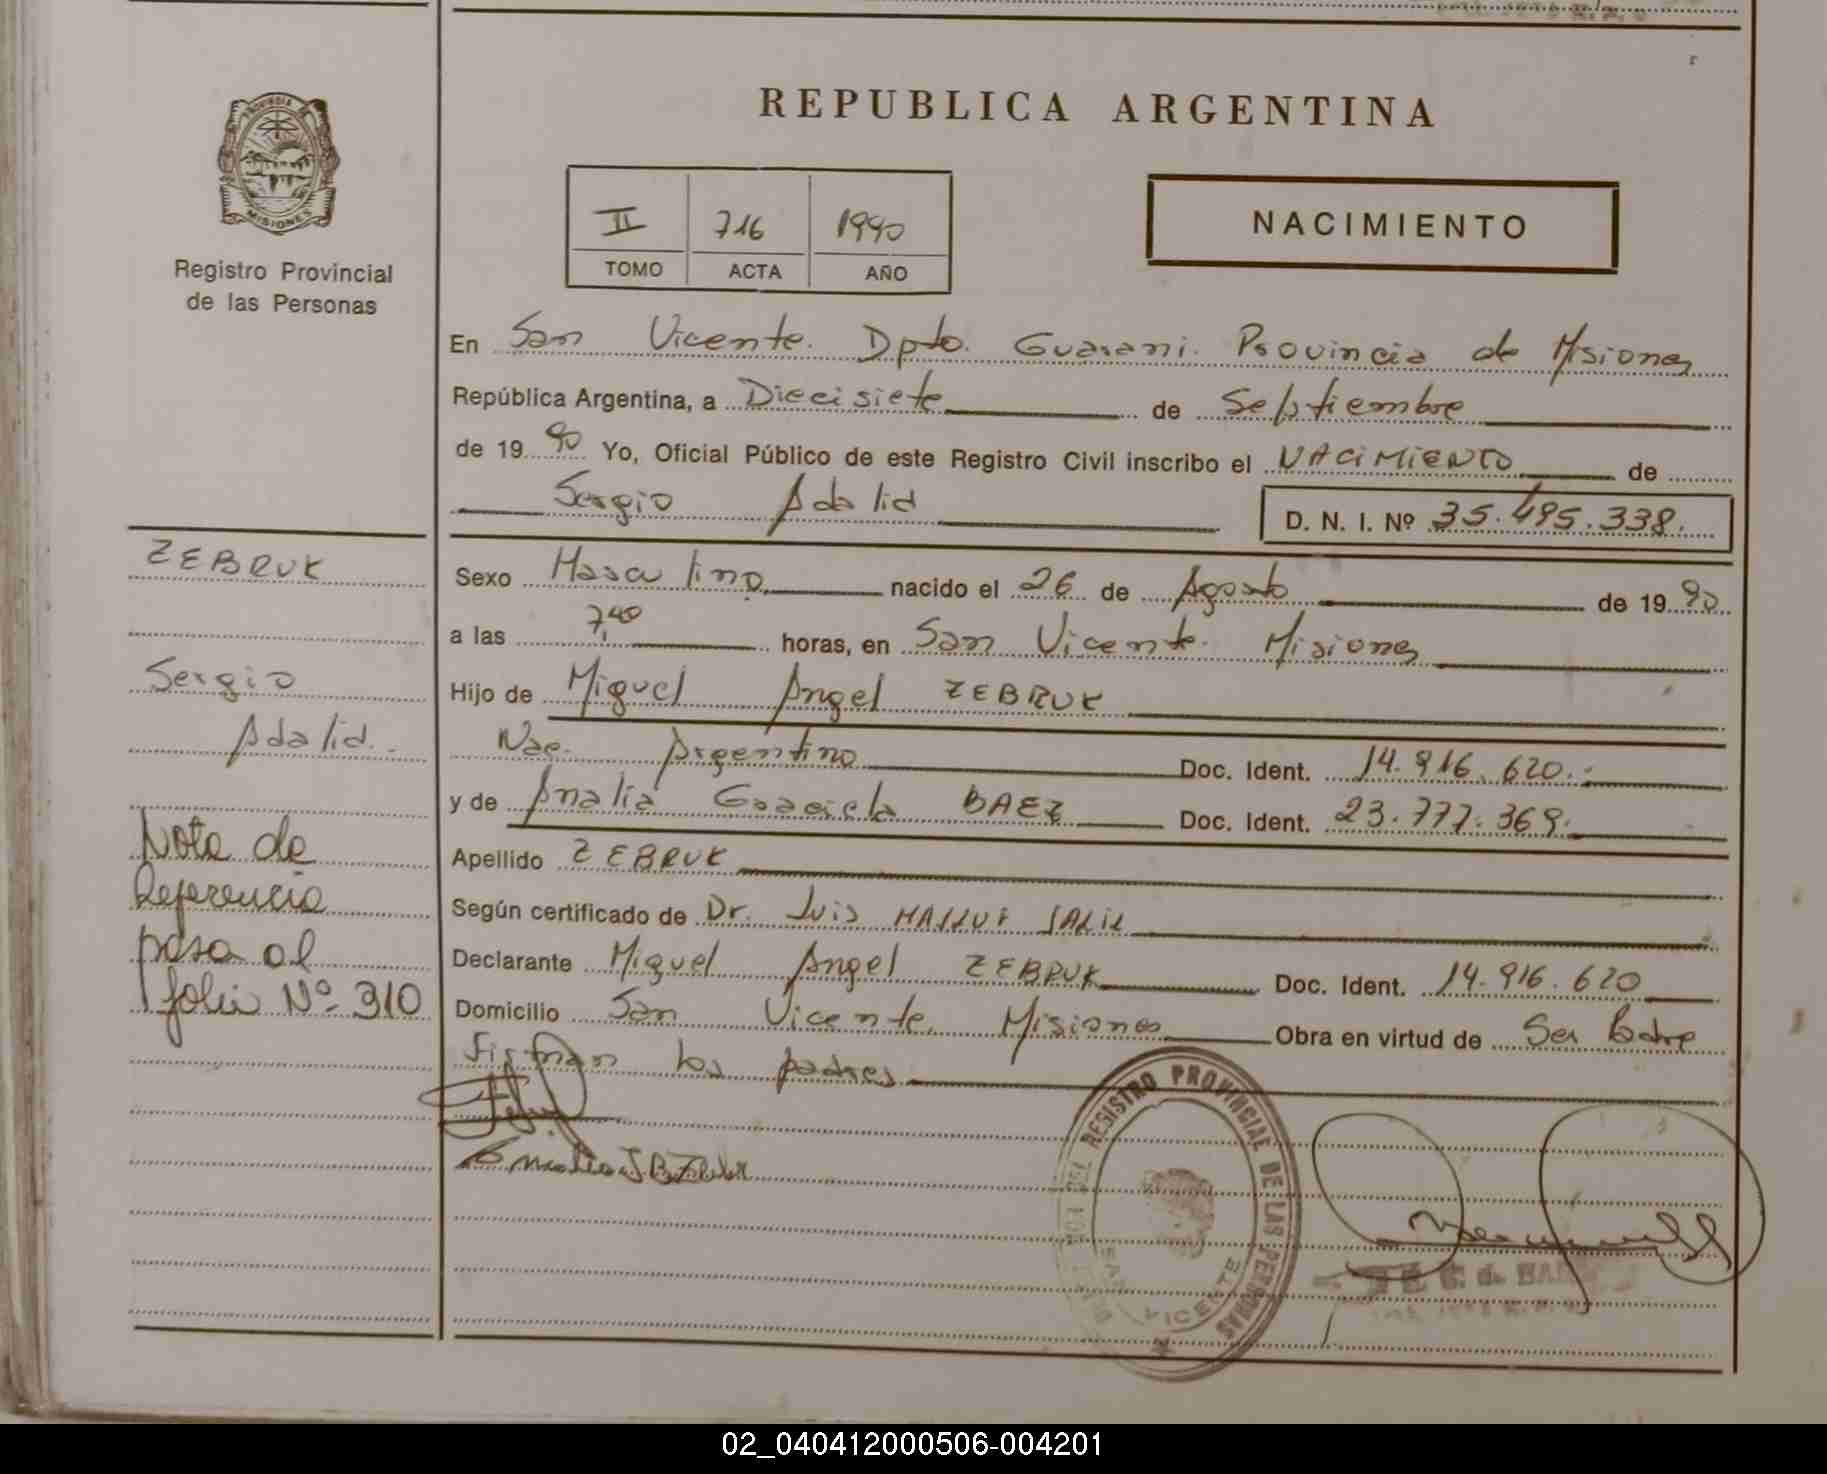 PROVINCIA DE
MISIONES
Registro Provincial
de las Personas
REPUBLICA ARGENTINA
II 716 1990
TOMO ACTA AÑO
NACIMIENTO
En San Vicente. Dpto. Guarani. Provincia de Misiones
República Argentina, a Diecisiete de Septiembre
de 1990 Yo, Oficial Público de este Registro Civil inscribo el NACIMIENTO de
Sergio Adalid D. N. I. Nº 35.495.338.
ZEBRUK
Sergio
Adalid.
Nota de
Referencia
pasa al
folio Nº 310
Sexo Masculino nacido el 26 de Agosto de 1990
a las 7,40 horas, en San Vicente. Misiones
Hijo de Miguel Angel ZEBRUK
Nac. Argentino Doc. Ident. 14.916.620.
y de Analia Graciela BAEZ Doc. Ident. 23.777.369.
Apellido ZEBRUK
Según certificado de Dr. Luis
Declarante Miguel Angel ZEBRUK Doc. Ident. 14.916.620
Domicilio San Vicente. Misiones Obra en virtud de Ser Padre
Firman los padres
REGISTRO PROVINCIAL DE LAS PERSONAS
SAN VICENTE
02_040412000506-004201